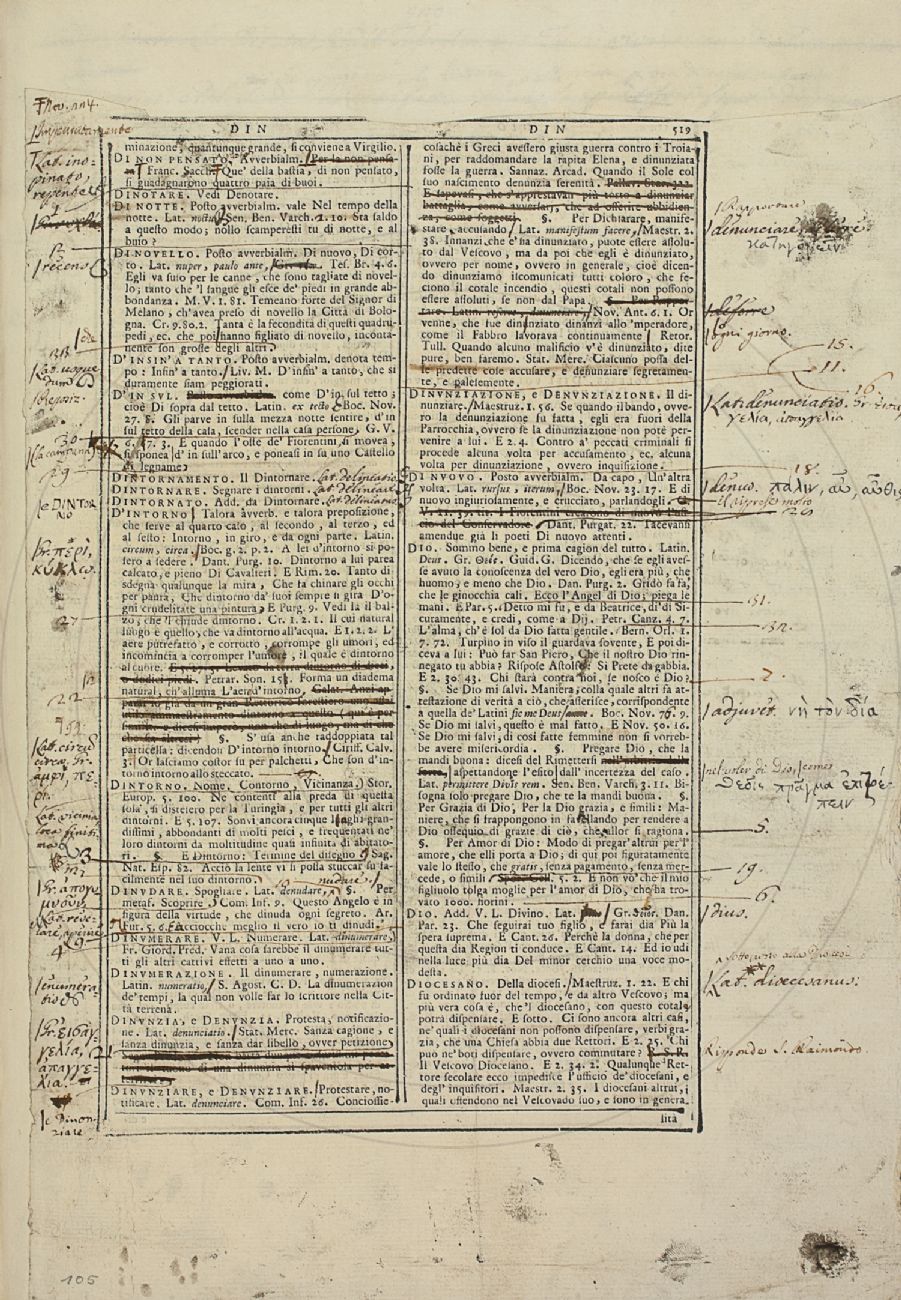 DIN
DIN 519
minazione, quantunque grande, si conviene a Virgilio.
DI NON PENSATO. Avverbialm. Per la non pensa-
Franc. Sacch. Que' della bastia, di non pensato,
si guadagnarono quattro paia di buoi.
DINOTARE. Vedi Denotare.
DI NOTTE. Posto avverbialm. vale Nel tempo della
notte. Lat. noctu. Sen. Ben. Varch. 2. 10. Sta saldo
a questo modo; nollo scamperesti tu di notte, e al
buio?
DI NOVELLO. Posto avverbialm. Di nuovo, Di cor-
to. Lat. nuper, paulo ante, Tes. Br. 4. 6.
Egli va suso per le canne, che sono tagliate di novel-
lo; tanto che 'l sangue gli esce de' piedi in grande ab-
bondanza. M. V. 1. 81. Temeano forte del Signor di
Melano, ch'avea preso di novello la Città di Bolo-
gna. Cr. 9. 80. 2. Tanta è la fecondità di questi quadru-
pedi, ec. che poi hanno figliato di novello, inconta-
nente son grosse degli altri.
D'INSIN' A TANTO. Posto avverbialm. denota tem-
po: Insin' a tanto. Liv. M. D'insin' a tanto, che si
duramente siam peggiorati.
D'IN SUL. come D'in sul tetto;
cioè Di sopra dal tetto. Latin. ex tecto. Boc. Nov.
27. 8. Gli parve in sulla mezza notte sentire, d'in
sul tetto della casa, scender nella casa persone. G. V.
6. 7. 3. E quando l'oste de' Fiorentini si movea,
si sponea d'in sull'arco, e poneasi in su uno Castello
di legname.
DINTORNAMENTO. Il Dintornare.
DINTORNARE. Segnare i dintorni.
DINTORNATO. Add. da Dintornare.
D'INTORNO. Talora avverb. e talora preposizione,
che serve al quarto caso, al secondo, al terzo, ed
al sesto: Intorno, in giro, e da ogni parte. Latin.
circum, circa. Boc. g. 2. p. 2. A lei d'intorno si po-
sero a sedere. Dant. Purg. 10. Dintorno a lui parea
calcato, e pieno Di Cavalieri. E Rim. 20. Tanto di-
sdegna qualunque la mira, Che fa chinare gli occhi
per paura, Che dintorno da' suoi sempre si gira D'o-
gni crudelitate una pintura. E Purg. 9. Vedi là il bal-
zo, che 'l chiude dintorno. Cr. 1. 2. 1. Il cui natural
luogo è quello, che va dintorno all'acqua. E 1. 2. 2. L'
aere putrefatto, e corrotto, corrompe gli umori, ed
incomincia a corromper l'umore, il quale è dintorno
al cuore.
Petrar. Son. 158. Forma un diadema
natural, ch'alluma L'aere d'intorno.
§. S'usa anche raddoppiata tal
particella: dicendosi D'intorno intorno. Ciriff. Calv.
3. Or lasciamo costor su per palchetti, Che son d'in-
torno intorno allo steccato.
DINTORNO. Nome. Contorno, Vicinanza. Stor.
Europ. 5. 100. Ne contenti alla preda di questa
sola, si distesero per la Turingia, e per tutti gli altri
dintorni. E 5. 107. Sonvi ancora cinque laghi gran-
dissimi, abbondanti di molti pesci, e frequentati ne'
loro dintorni da moltitudine quasi infinita di abitato-
ri. §. E Dintorno: Termine del disegno. Sag.
Nat. Esp. 82. Acciò la lente vi si possa stuccar su fa-
cilmente nel suo dintorno.
DINUDARE. Spogliare. Lat. denudare, §. Per
metaf. Scoprire. Com. Inf. 9. Questo Angelo è in
figura della virtude, che dinuda ogni segreto. Ar.
Fur. 5. 6. Acciocche meglio il vero io ti dinudi.
DINUMERARE. V. L. Numerare. Lat. dinumerare,
Fr. Giord. Pred. Vana cosa sarebbe il dinumerare tut-
ti gli altri cattivi effetti a uno a uno.
DINUMERAZIONE. Il dinumerare, numerazione.
Latin. numeratio, S. Agost. C. D. La dinumerazion
de' tempi, la qual non volle far lo scrittore nella Cit-
tà terrena.
DINUNZIA, e DENUNZIA. Protesta, notificazio-
ne. Lat. denunciatio. Stat. Merc. Sanza cagione, e
sanza dinunzia, e sanza dar libello, ovver petizione,
DINUNZIARE, e DENUNZIARE. Protestare, no-
tificare. Lat. denunciare. Com. Inf. 26. Conciossie-
cosachè i Greci avessero giusta guerra contro i Troia-
ni, per raddomandare la rapita Elena, e dinunziata
fosse la guerra. Sannaz. Arcad. Quando il Sole col
suo nascimento denunzia serenità.
§. Per Dichiarare, manife-
stare, accusando. Lat. manifestum facere, Maestr. 2.
38. Innanzi che e' sia dinunziato, puote essere assolu-
to dal Vescovo, ma da poi che egli è dinunziato,
ovvero per nome, ovvero in generale, cioè dicen-
do dinunziamo iscomunicati tutti coloro, che fe-
ciono il cotale incendio, questi cotali non possono
essere assoluti, se non dal Papa.
Nov. Ant. 6. 1. Or
venne, che fue dinunziato dinanzi allo 'mperadore,
come il Fabbro lavorava continuamente. Retor.
Tull. Quando alcuno malificio v'è dinunziato, dite
pure, ben faremo. Stat. Merc. Ciascuno possa del-
le predette cose accusare, e denunziare segretamen-
te, e palesemente.
DINUNZIAZIONE, e DENUNZIAZIONE. Il di-
nunziare. Maestruz. 1. 56. Se quando il bando, ovve-
ro la denunziazione fu fatta, egli era fuori della
Parrocchia, ovvero se la dinunziazione non potè per-
venire a lui. E 2. 4. Contro a' peccati criminali si
procede alcuna volta per accusamento, ec. alcuna
volta per dinunziazione, ovvero inquisizione.
DI NUOVO. Posto avverbialm. Da capo, Un'altra
volta. Lat. rursus, iterum, Boc. Nov. 23. 17. E di
nuovo ingiuriosamente, e crucciato, parlandogli.
Dant. Purgat. 22. Tacevansi
amendue già li poeti Di nuovo attenti.
DIO. Sommo bene, e prima cagion del tutto. Latin.
Deus. Gr. Θεός. Guid. G. Dicendo, che se egli aves-
se avuto la conoscenza del vero Dio, egli era più, che
huomo, e meno che Dio. Dan. Purg. 2. Gridò fa fa,
che le ginocchia cali. Ecco l'Angel di Dio; piega le
mani. E Par. 5. Detto mi fu, e da Beatrice, dì dì Si-
curamente, e credi, come a Dij. Petr. Canz. 4. 7.
L'alma, ch'è sol da Dio fatta gentile. Bern. Orl. 1.
7. 72. Turpino in viso il guardava sovente, E poi di-
ceva a lui: Può far San Piero, Che il nostro Dio rin-
negato tu abbia? Rispose Astolfo: Si Prete da gabbia.
E 2. 30. 43. Chi starà contra noi, se nosco è Dio?
§. Se Dio mi salvi. Maniera, colla quale altri fa at-
testazione di verità a ciò, che asserisce, corrispondente
a quella de' Latini sic me Deus amet. Boc. Nov. 76. 9.
Se Dio mi salvi, questo è mal fatto. E Nov. 50. 16.
Se Dio mi salvi, di così fatte femmine non si vorreb-
be avere misericordia. §. Pregare Dio, che la
mandi buona: dicesi del Rimettersi
aspettandone l'esito dall'incertezza del caso.
Lat. permittere Divis rem. Sen. Ben. Varch. 3. 11. Bi-
sogna solo pregare Dio, che te la mandi buona. §.
Per Grazia di Dio, Per la Dio grazia, e simili: Ma-
niere, che si frappongono in favellando per rendere a
Dio ossequio di grazie di ciò, che allor si ragiona.
§. Per Amor di Dio: Modo di pregar' altrui per l'
amore, che elli porta a Dio; di qui poi figuratamente
vale lo stesso, che gratis, senza pagamento, senza mer-
cede, o simili. 5. 2. E non vo' che il mio
figliuolo tolga moglie per l'amor di Dio, che ha tro-
vato 1000. fiorini.
DIO. Add. V. L. Divino. Lat. Gr. Dan.
Par. 23. Che seguirai tuo figlio, e farai dia Più la
spera suprema. E Cant. 26. Perchè la donna, che per
questa dia Region ti conduce. E Cant. 14. Ed io udi
nella luce più dia Del minor cerchio una voce mo-
desta.
DIOCESANO. Della diocesi. Maestruz. 1. 22. E chi
fu ordinato fuor del tempo, e da altro Vescovo; ma
più vera cosa è, che 'l diocesano, con questo cotale
potrà dispensare. E sotto. Ci sono ancora altri casi,
ne' quali i diocesani non possono dispensare, verbi gra-
zia, che una Chiesa abbia due Rettori. E 2. 25. Chi
può ne' boti dispensare, ovvero commutare? R. S. R.
Il Vescovo Diocesano. E 2. 34. 2. Qualunque Ret-
tore secolare ecco impedisce l'usficio de' diocesani, e
degl' inquisitori. Maestr. 2. 35. I diocesani altut, i
quali offendono nel Vescovado suo, e sono in genera-
sità
Lat. ino-
pinato,
recens
e DINTOR
NO
Gr. περί,
κύκλω.
Lat. circu
circa. Gr.
ἀμφί, πε-
ρί.
Lat. vicinia
enumera-
tio
Gr. εἰσαγ
γελία,
ἀπαγγε-
λία.
e Dinon-
ziare
denunciare
ogni giorno.
15.
11.
16.
Lat. denunciatio.
18.
denuo. πάλιν, αὖ, αὖθις
31.
32.
2
adjuvet. νὴ τὸν δία
5.
19.
6
dius.
Lat. diocesanus.
Risponde S. Raimondo.
105